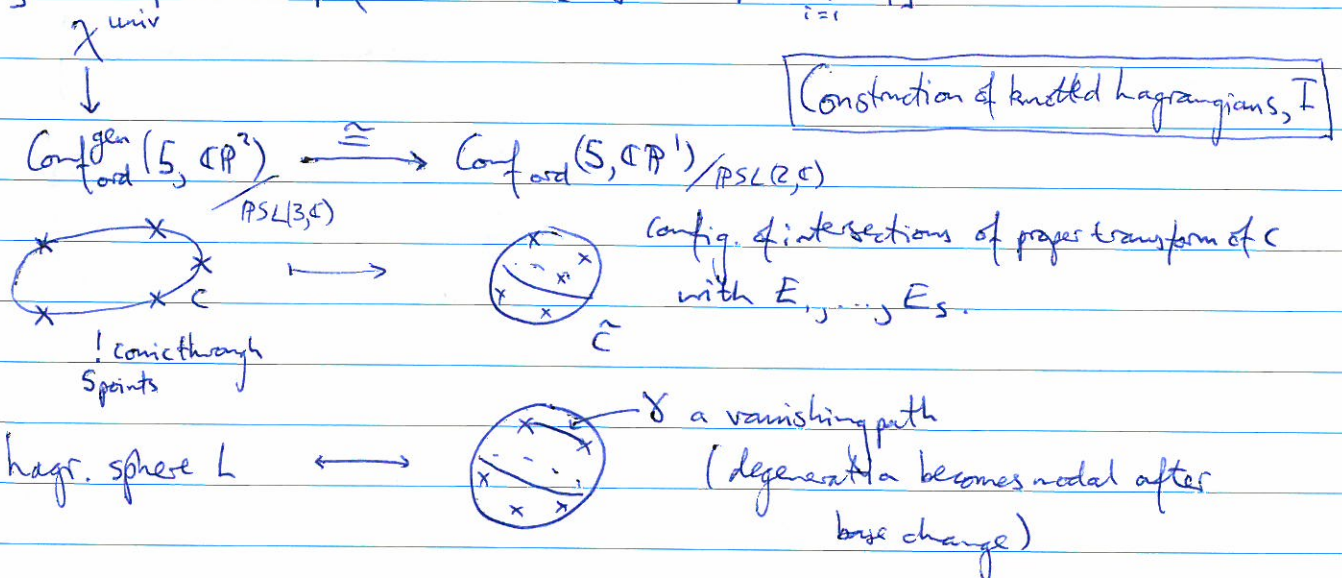 i=1
𝒳^univ
↓
Construction of knotted Lagrangians, I
Conf^gen_ord(5, ℂℙ²)/ℙSL(3,ℂ) ≅→ Conf_ord(5, ℂℙ¹)/ℙSL(2,ℂ)
config. of intersections of proper transform of C
C ↦ with E₁, ..., E₅.
C̃
! conic through
5 points
γ a vanishing path
Lagr. sphere L ↔ (degeneration becomes nodal after
base change)